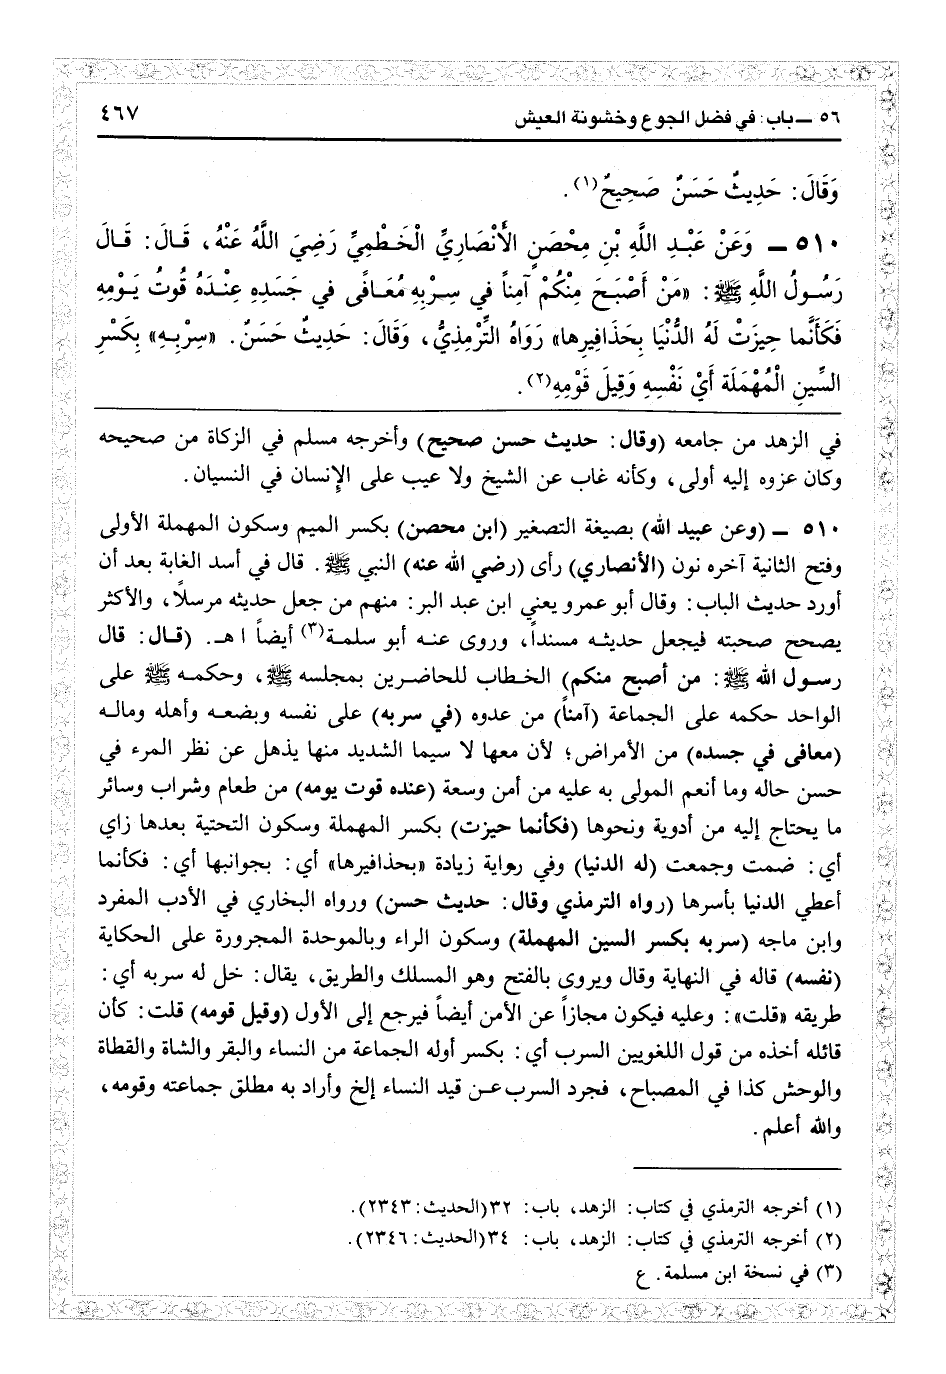 ٥٦ ـ باب: في فضل الجوع وخشونة العيش ٤٦٧
وَقَالَ: حَدِيثٌ حَسَنٌ صَحِيحٌ(١).
٥١٠ ـ وَعَنْ عَبْدِ اللَّهِ بْنِ مِحْصَنٍ الأَنْصَارِيِّ الْخَطْمِيِّ رَضِيَ اللَّهُ عَنْهُ، قَالَ: قَالَ
رَسُولُ اللَّهِ ﷺ: «مَنْ أَصْبَحَ مِنْكُمْ آمِناً في سِرْبِهِ مُعَافًى في جَسَدِهِ عِنْدَهُ قُوتُ يَوْمِهِ
فَكَأَنَّما حِيزَتْ لَهُ الدُّنْيَا بِحَذَافِيرِها» رَوَاهُ التِّرْمِذِيُّ، وَقَالَ: حَدِيثٌ حَسَنٌ. «سِرْبِهِ» بِكَسْرِ
السِّينِ الْمُهْمَلَة أَيْ نَفْسِهِ وَقِيلَ قَوْمِهِ(٢).
في الزهد من جامعه (وقال: حديث حسن صحيح) وأخرجه مسلم في الزكاة من صحيحه
وكان عزوه إليه أولى، وكأنه غاب عن الشيخ ولا عيب على الإنسان في النسيان.
٥١٠ ـ (وعن عبيد الله) بصيغة التصغير (ابن محصن) بكسر الميم وسكون المهملة الأولى
وفتح الثانية آخره نون (الأنصاري) رأى (رضي الله عنه) النبي ﷺ. قال في أسد الغابة بعد أن
أورد حديث الباب: وقال أبو عمرو يعني ابن عبد البر: منهم من جعل حديثه مرسلاً، والأكثر
يصحح صحبته فيجعل حديثه مسنداً، وروى عنه أبو سلمة(٣) أيضاً ا هـ. (قال: قال
رسول الله ﷺ: من أصبح منكم) الخطاب للحاضرين بمجلسه ﷺ، وحكمه ﷺ على
الواحد حكمه على الجماعة (آمناً) من عدوه (في سربه) على نفسه وبضعه وأهله وماله
(معافى في جسده) من الأمراض؛ لأن معها لا سيما الشديد منها يذهل عن نظر المرء في
حسن حاله وما أنعم المولى به عليه من أمن وسعة (عنده قوت يومه) من طعام وشراب وسائر
ما يحتاج إليه من أدوية ونحوها (فكأنما حيزت) بكسر المهملة وسكون التحتية بعدها زاي
أي: ضمت وجمعت (له الدنيا) وفي رواية زيادة «بحذافيرها» أي: بجوانبها أي: فكأنما
أعطي الدنيا بأسرها (رواه الترمذي وقال: حديث حسن) ورواه البخاري في الأدب المفرد
وابن ماجه (سربه بكسر السين المهملة) وسكون الراء وبالموحدة المجرورة على الحكاية
(نفسه) قاله في النهاية وقال ويروى بالفتح وهو المسلك والطريق، يقال: خل له سربه أي:
طريقه «قلت»: وعليه فيكون مجازاً عن الأمن أيضاً فيرجع إلى الأول (وقيل قومه) قلت: كأن
قائله أخذه من قول اللغويين السرب أي: بكسر أوله الجماعة من النساء والبقر والشاة والقطاة
والوحش كذا في المصباح، فجرد السرب عن قيد النساء إلخ وأراد به مطلق جماعته وقومه،
والله أعلم.
(١) أخرجه الترمذي في كتاب: الزهد، باب: ٣٢(الحديث: ٢٣٤٣).
(٢) أخرجه الترمذي في كتاب: الزهد، باب: ٣٤(الحديث: ٢٣٤٦).
(٣) في نسخة ابن مسلمة. ع